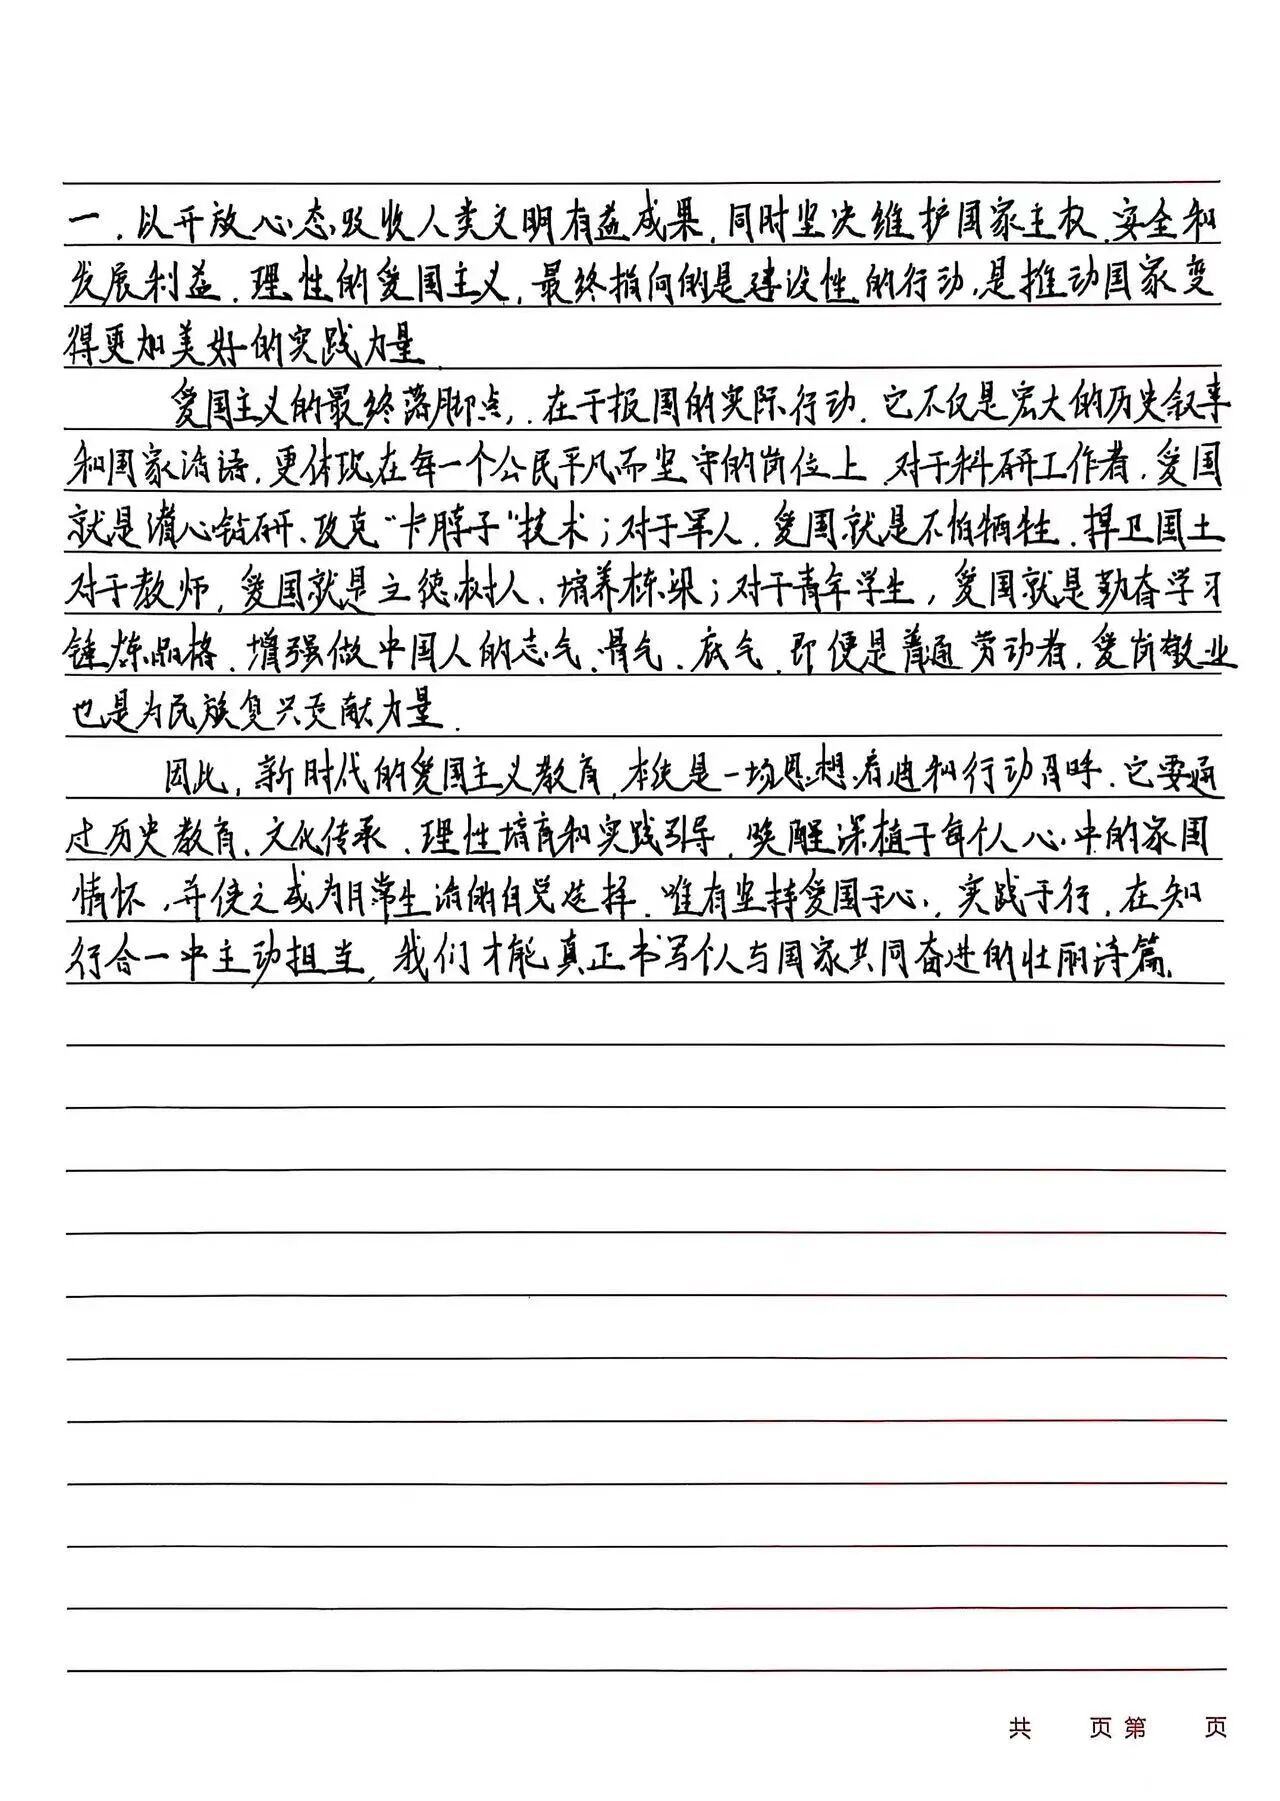 一，以开放心态吸收人类文明有益成果，同时坚决维护国家主权、安全和
发展利益。理性的爱国主义，最终指向的是建设性的行动，是推动国家变
得更加美好的实践力量。
爱国主义的最终落脚点，在于报国的实际行动。它不仅是宏大的历史叙事
和国家话语，更体现在每一个公民平凡而坚守的岗位上。对于科研工作者，爱国
就是潜心钻研、攻克“卡脖子”技术；对于军人，爱国就是不怕牺牲、捍卫国土
对于教师，爱国就是立德树人、培养栋梁；对于青年学生，爱国就是勤奋学习
锤炼品格、增强做中国人的志气、骨气、底气。即便是普通劳动者，爱岗敬业
也是为民族复兴贡献力量。
因此，新时代的爱国主义教育，本质是一场思想启迪和行动召呼。它要通
过历史教育、文化传承、理性培育和实践引导，唤醒深植于每个人心中的家国
情怀，并使之成为日常生活的自觉选择。唯有坚持爱国于心，实践于行，在知
行合一中主动担当，我们才能真正书写个人与国家共同奋进的壮丽诗篇。
共 页 第 页